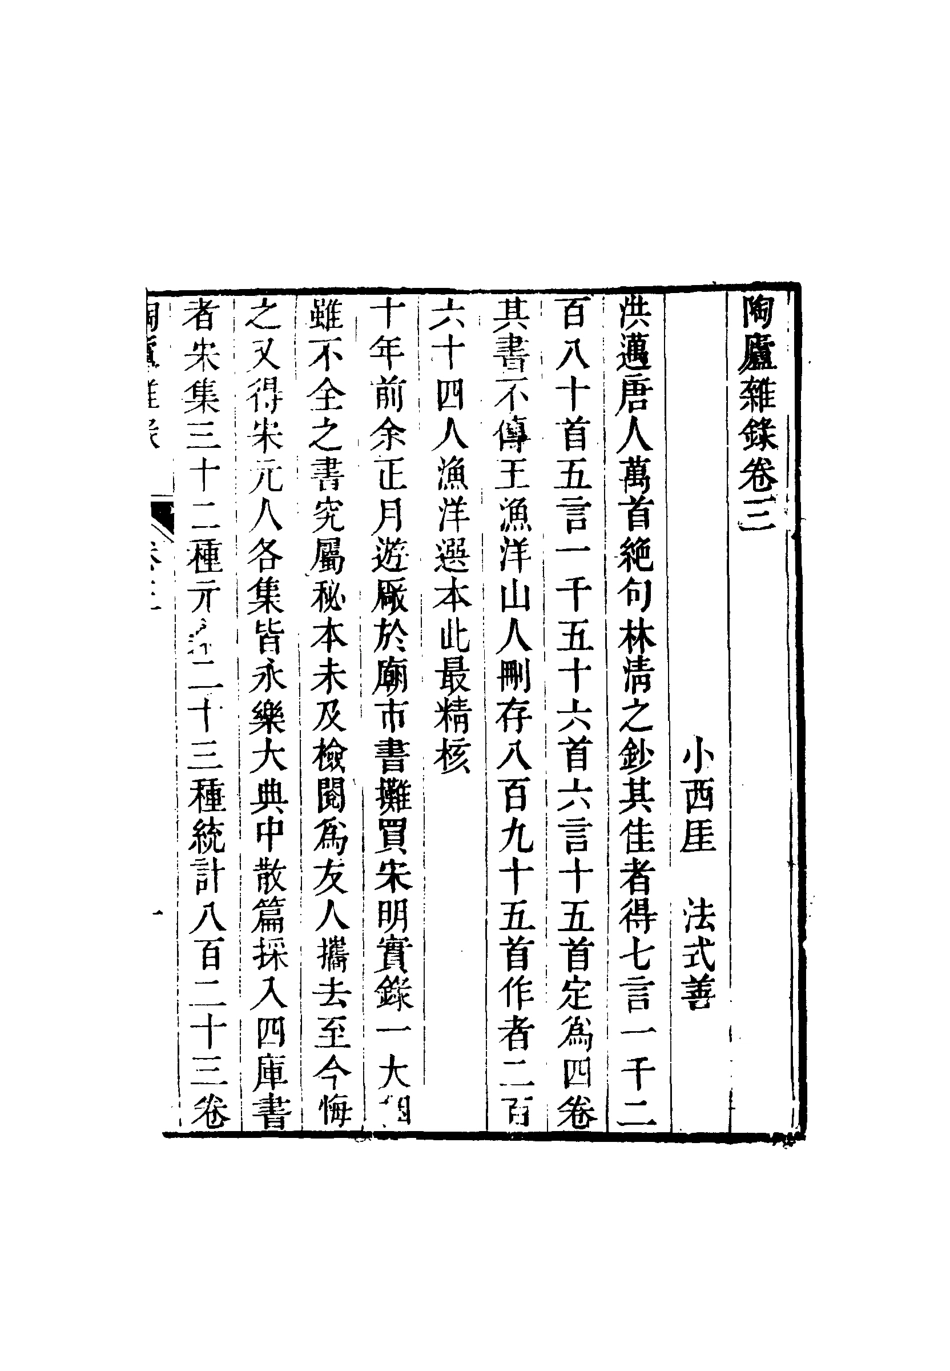 陶廬雜錄卷三
小西厓　法式善
洪邁唐人萬首絕句林淸之鈔其佳者得七言一千二
百八十首五言一千五十六首六言十五首定爲四卷
其書不傳王漁洋山人刪存八百九十五首作者二百
六十四人漁洋選本此最精核
十年前余正月遊厰於廟市書攤買宋明實錄一大
雖不全之書究屬秘本未及檢閱爲友人攜去至今悔
之又得宋元人各集皆永樂大典中散篇採入四庫書
者宋集三十二種元二十三種統計八百二十三卷
陶廬雜錄
卷三
一